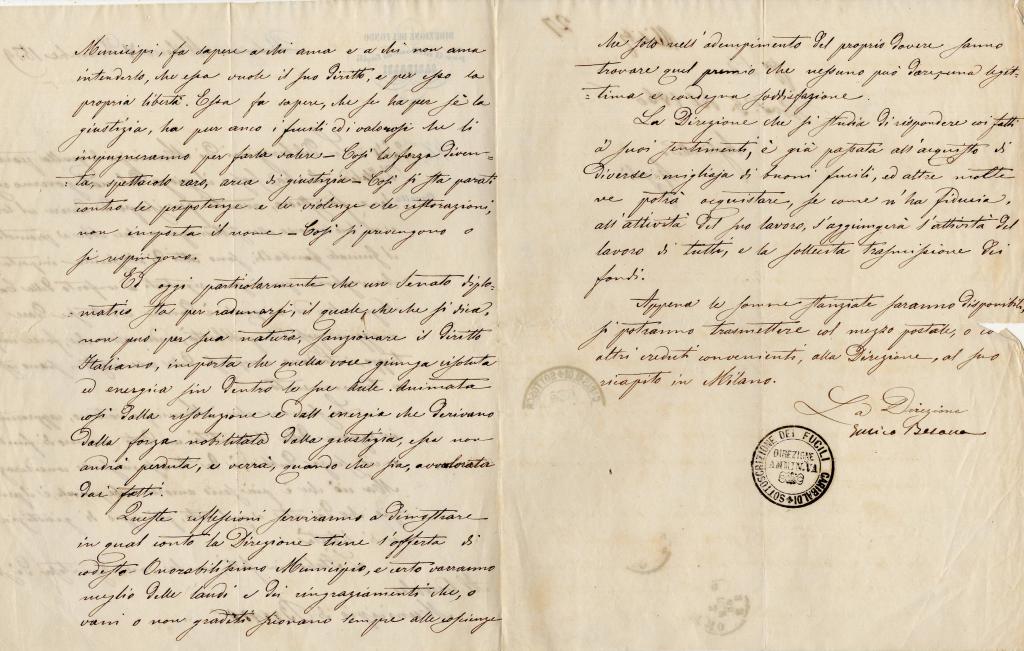 Municipi, fa sapere a chi ama e a chi non ama
intenderlo, che essa vuole il suo diritto, e per esso la
propria libertà. Essa fa sapere, che se ha per sè la
giustizia, ha pur anco i fucili ed i valorosi che li
impugneranno per farla valere — Così la forza diven-
-ta, spettacolo raro, arca di giustizia — Così si sta parati
contro le prepotenze e le violenze e le ristorazioni,
non importa il nome — Così si prevengono o
si respingono.
Ed oggi particolarmente che un Senato diplo-
-matico sta per radunarsi, il quale, che che si dica,
non può per sua natura, sanzionare il diritto
Italiano, importa che quella voce giunga risoluta
ed energica fin dentro le sue Aule. Animata
così dalla risoluzione e dall'energia che derivano
dalla forza nobilitata dalla giustizia, essa non
andrà perduta, e verrà, quando che sia, avvalorata
dai fatti.
Queste riflessioni serviranno a dimostrare
in qual conto la Direzione tiene l'offerta di
codesto Onorabilissimo Municipio, e certo varranno
meglio delle laudi e dei ringraziamenti che, o
vani o non graditi suonano sempre alle coscienze
che solo nell'adempimento del proprio dovere sanno
trovare quel premio che nessuno può dare, una legit-
-tima e condegna soddisfazione.
La Direzione che si studia di rispondere coi fatti
a' suoi sentimenti, è già passata all'acquisto di
diverse migliaja di buoni fucili, ed altre molte
ve potrà acquistare, se come n'ha fiducia,
all'attività del suo lavoro, s'aggiungerà l'attività del
lavoro di tutti, e la sollecita trasmissione dei
fondi.
Appena le somme stanziate saranno disponibili,
si potranno trasmettere col mezzo postale, o co
altri crediti convenienti, alla Direzione, al suo
ricapito in Milano.
La Direzione
Enrico Besana
SOTTOSCRIZIONE DEI FUCILI GARIBALDI
DIREZIONE
AMMIN.VA